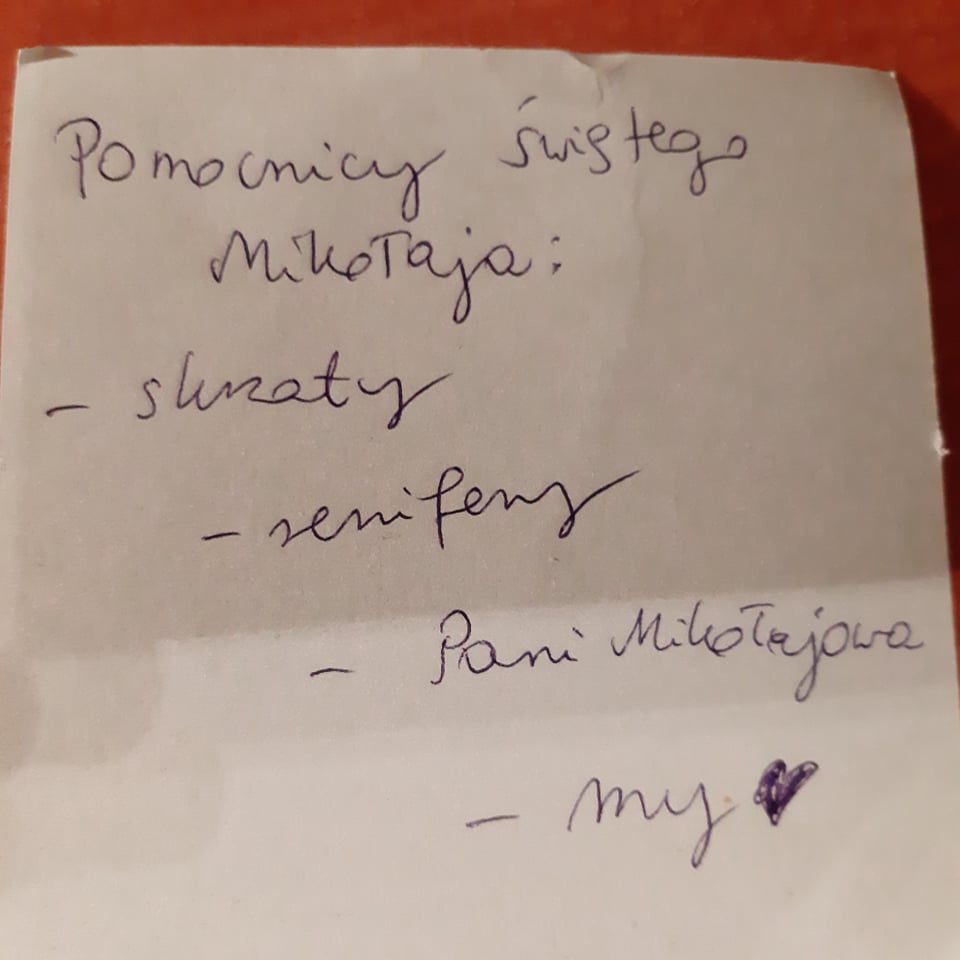 Pomocnicy świętego
Mikołaja:
- skrzaty
- renifery
- Pani Mikołajowa
- my ♥